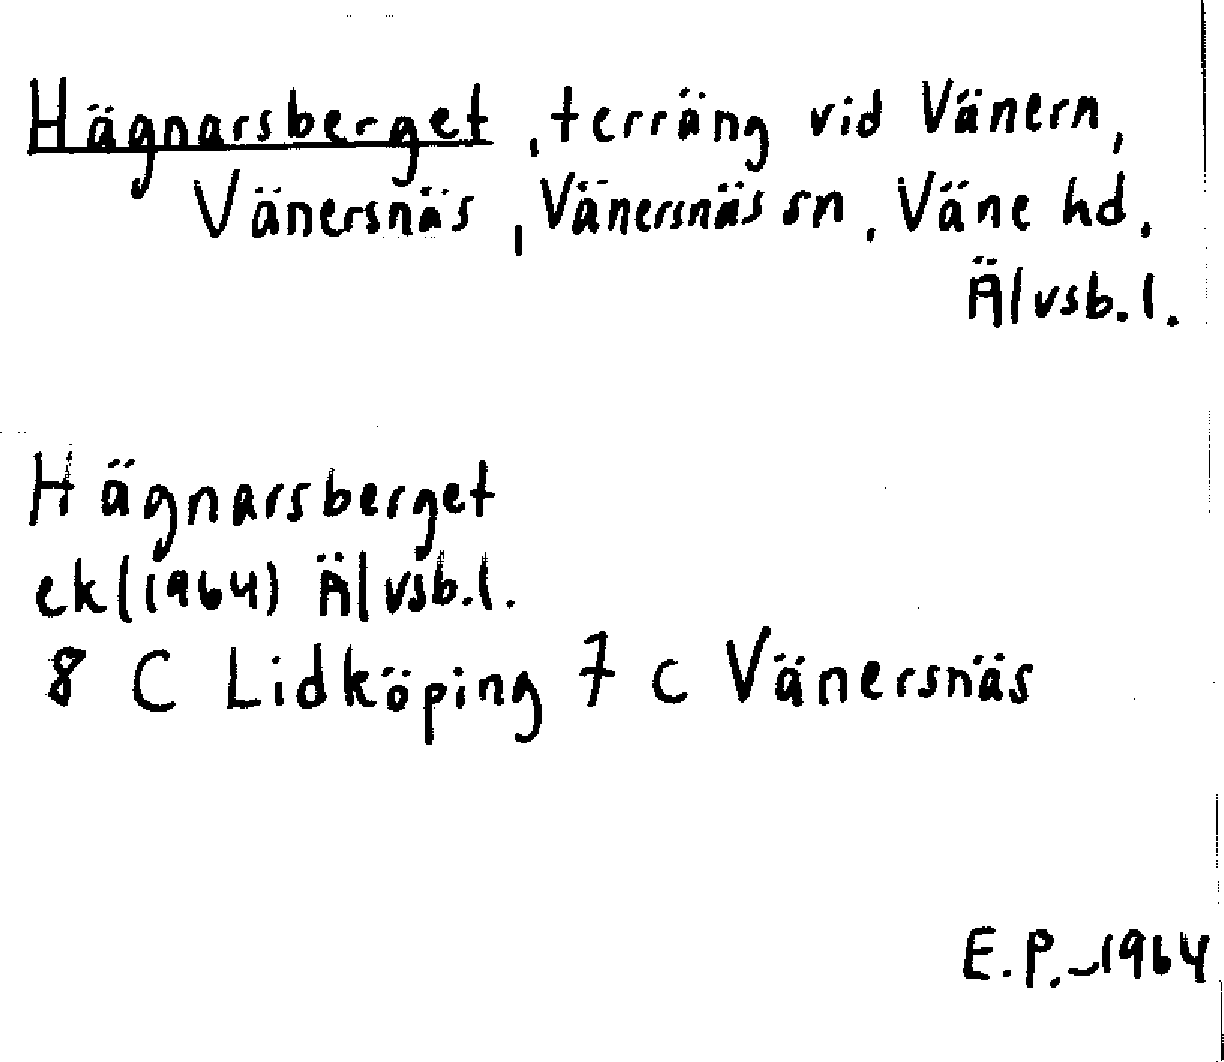 Hägnarsberget, terräng vid Vänern,
Vänersnäs, Vänersnäs sn, Väne hd.
Älvsb.l.
Hägnarsberget
ek (1964) Älvsb.l.
8 C Lidköping 7 c Vänersnäs
E.P. 1964